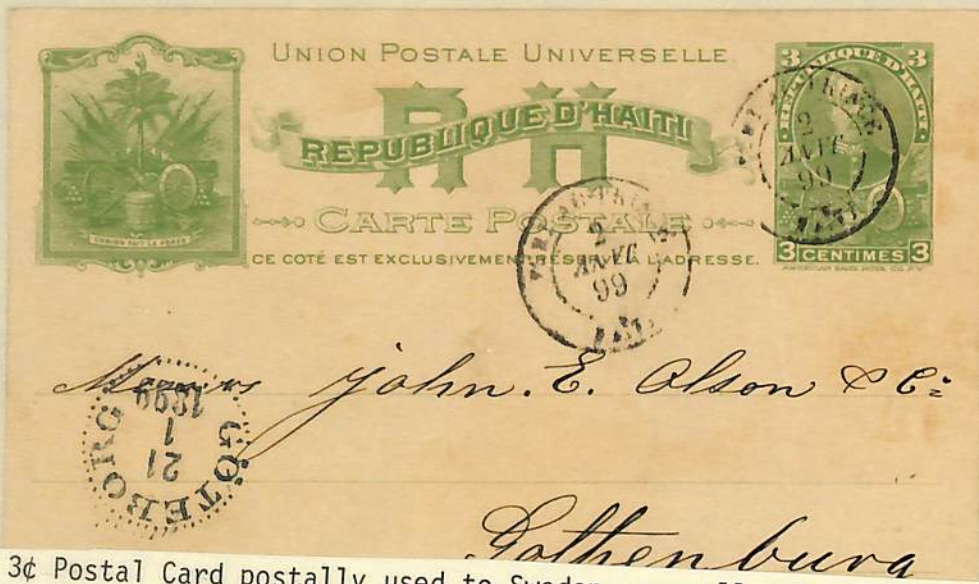 UNION POSTALE UNIVERSELLE
RH
REPUBLIQUE D'HAITI
CARTE POSTALE
CE COTÉ EST EXCLUSIVEMENT RÉSERVÉ À L'ADRESSE.
L'UNION FAIT LA FORCE
3 3
REPUBLIQUE D'HAITI
3 CENTIMES 3
AMERICAN BANK NOTE CO. N.Y.
PORT-AU-PRINCE
2
99
PORT-AU-PRINCE
2
99
Messrs John. E. Olson & Co
GÖTEBORG
21
1
1899
Gothenburg
3¢ Postal Card postally used to Sweden